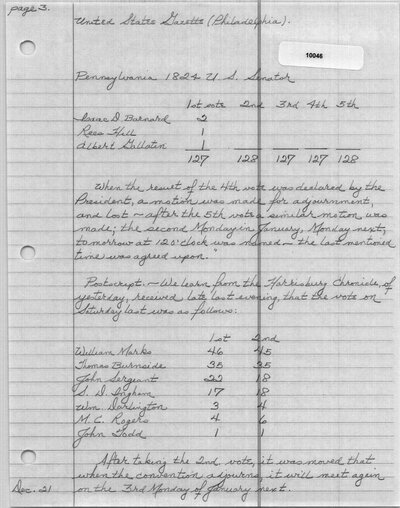 page 3.
United States Gazette (Philadelphia).
10046
Pennsylvania 1824 U. S. Senator
1st vote 2nd 3rd 4th 5th
Isaac D. Barnard 2
Rees Hill 1
Albert Gallatin 1
127 128 127 127 128
When the result of the 4th vote was declared by the
President, a motion was made for adjournment,
and lost ~ after the 5th vote a similar motion was
made; the second Monday in January, Monday next,
tomorrow at 12 o'clock was named ~ the last mentioned
time was agreed upon."
Postscript. ~ We learn from the Harrisburg Chronicle, of
yesterday, received late last evening, that the vote on
Saturday last was as follows:
1st 2nd
William Marks 46 45
Thomas Burnside 35 35
John Sergeant 22 18
S. D. Ingham 17 18
Wm. Darlington 3 4
M. C. Rogers 4 6
John Todd 1 1
After taking the 2nd vote, it was moved that
when the convention adjourns, it will meet again
Dec. 21 on the 3rd Monday of January next.